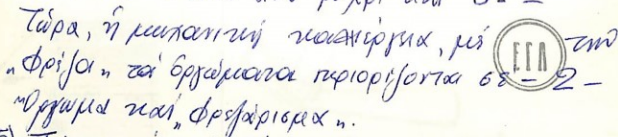 Τώρα, ἡ μηχανική καλλιέργεια, μέ τήν
"φρέζα" τά ὀργώματα περιορίζονται σε - 2 -
"Ὄργωμα καί "φρεζάρισμα".
ΕΓΛ